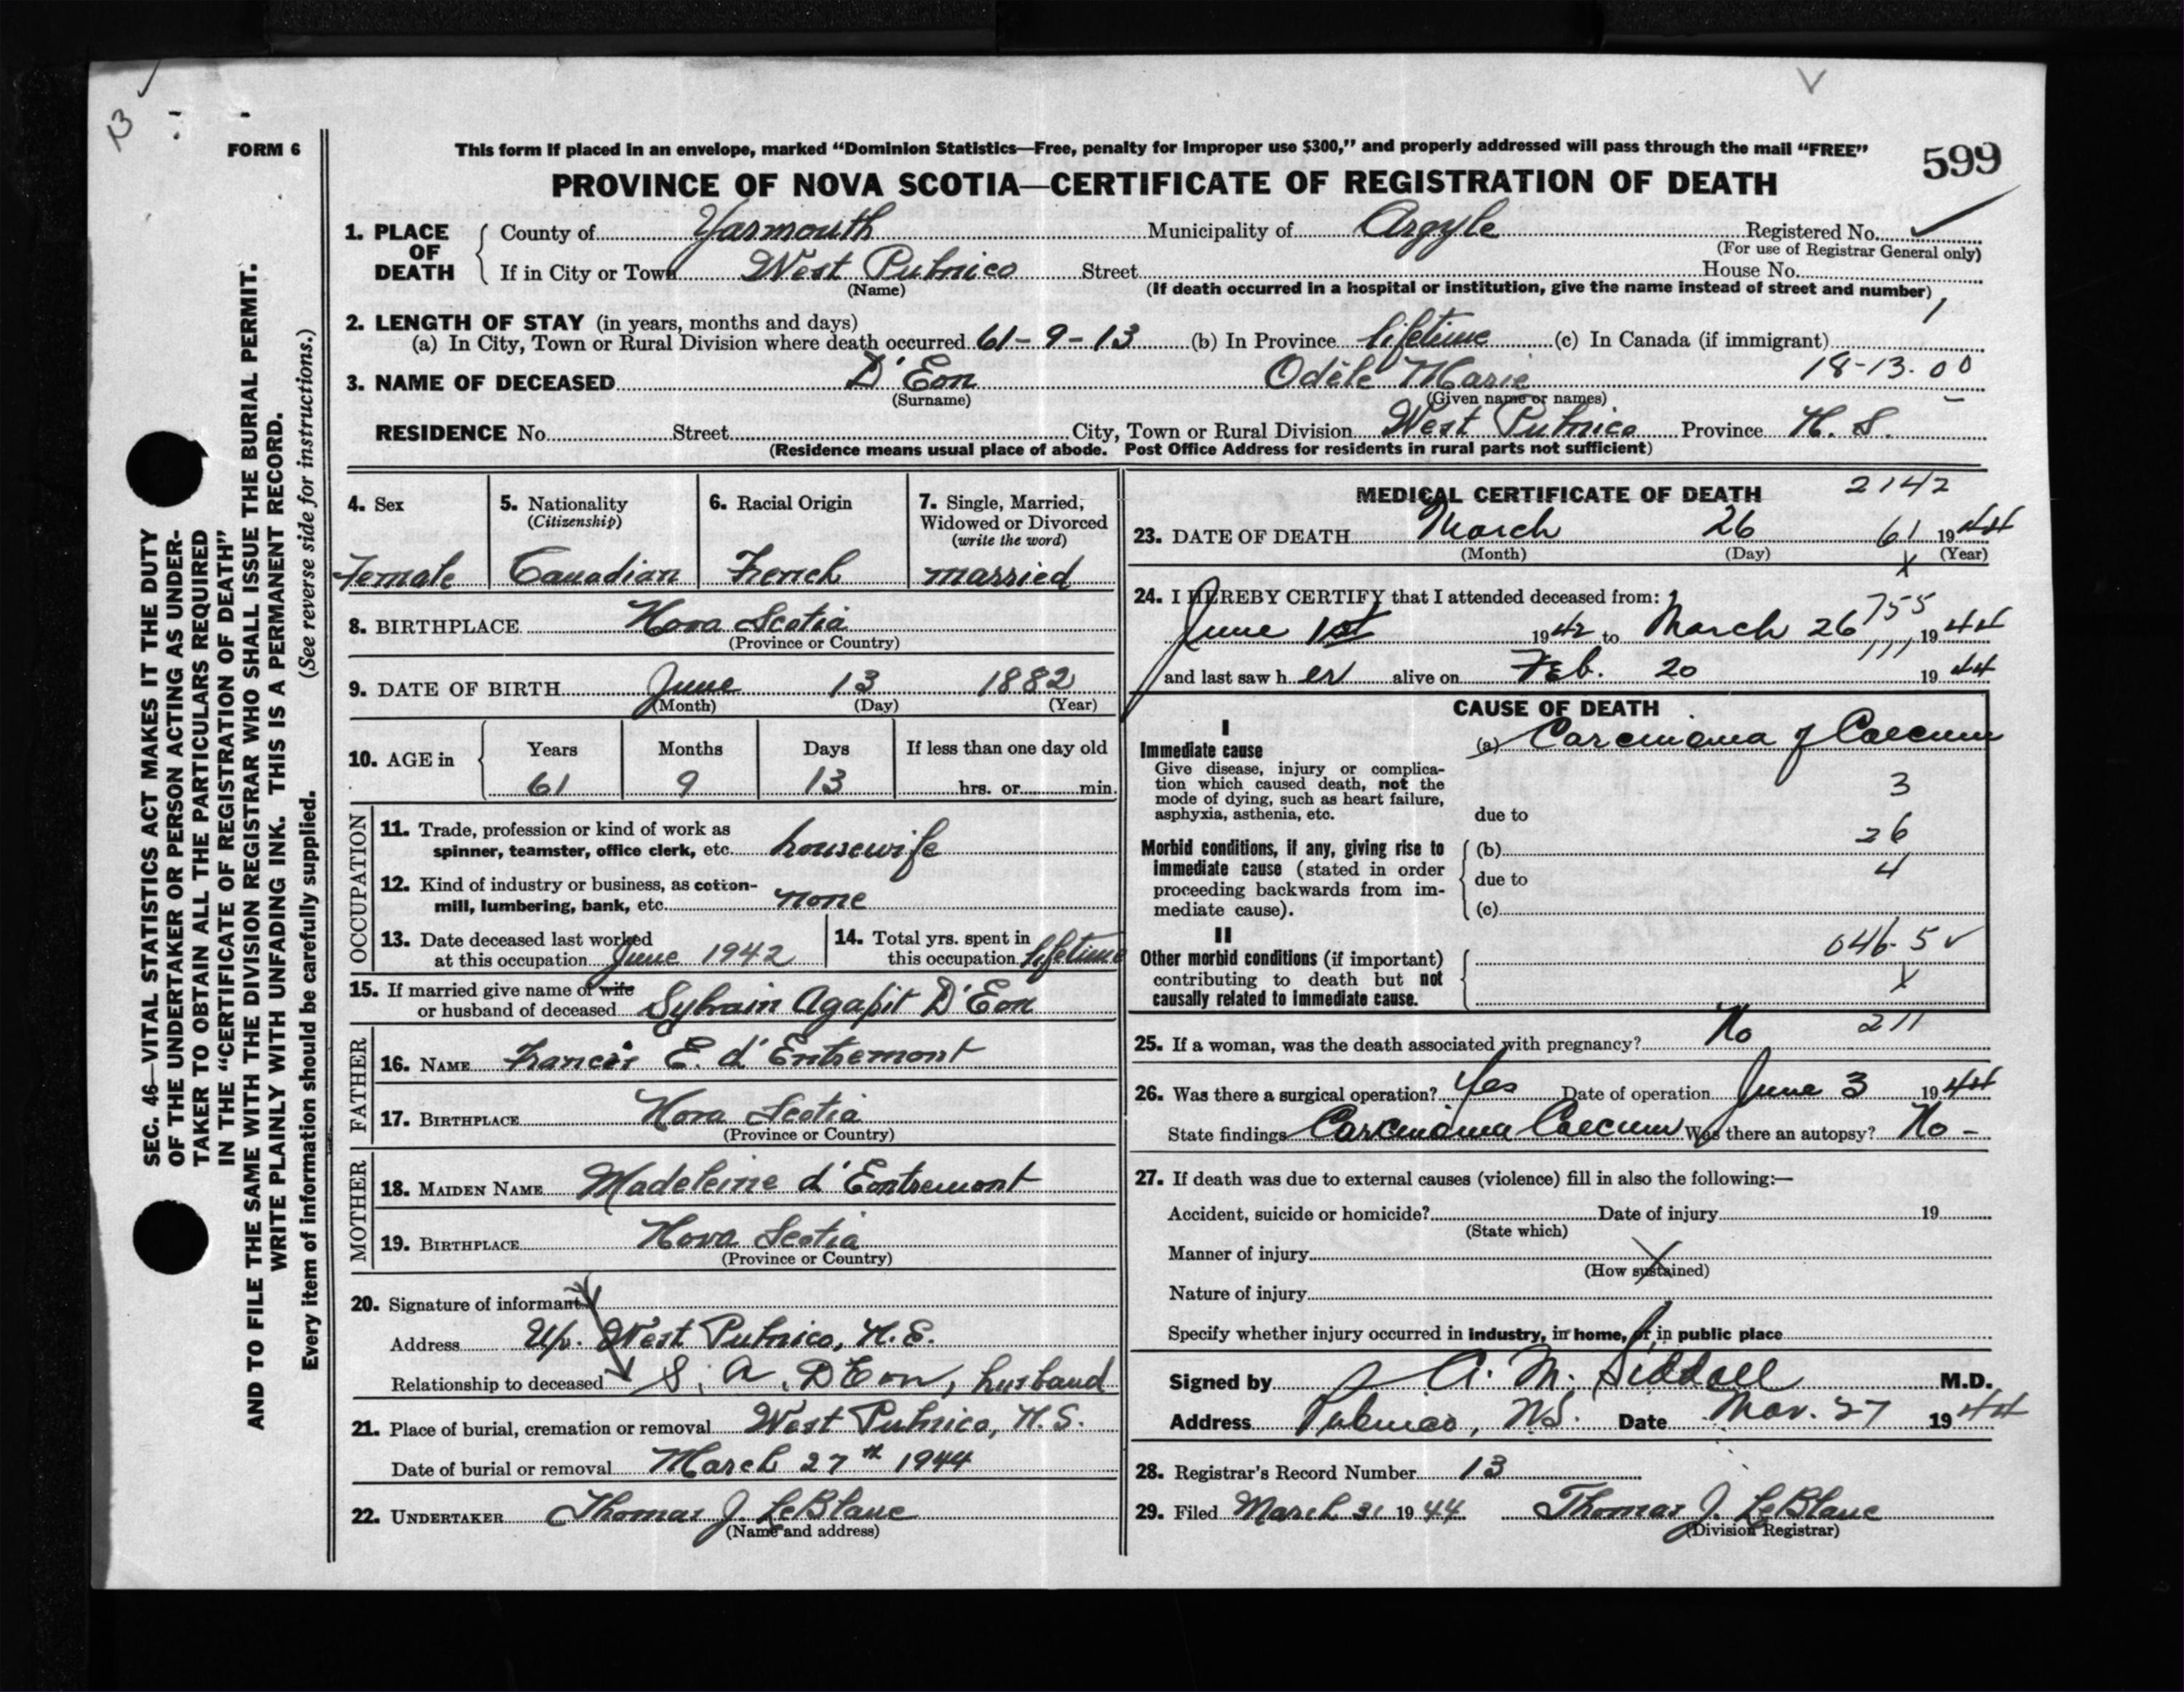 13
FORM 6
This form if placed in an envelope, marked "Dominion Statistics—Free, penalty for improper use $300," and properly addressed will pass through the mail "FREE"
599
PROVINCE OF NOVA SCOTIA—CERTIFICATE OF REGISTRATION OF DEATH
1. PLACE OF DEATH County of Yarmouth Municipality of Argyle Registered No.
(For use of Registrar General only)
If in City or Town West Pubnico Street House No.
(Name) (If death occurred in a hospital or institution, give the name instead of street and number)
2. LENGTH OF STAY (in years, months and days)
(a) In City, Town or Rural Division where death occurred 61-9-13 (b) In Province lifetime (c) In Canada (if immigrant)
3. NAME OF DECEASED D'Eon Odèle Marie 18-13.00
(Surname) (Given name or names)
RESIDENCE No. Street City, Town or Rural Division West Pubnico Province N. S.
(Residence means usual place of abode. Post Office Address for residents in rural parts not sufficient)
4. Sex Female
5. Nationality (Citizenship) Canadian
6. Racial Origin French
7. Single, Married, Widowed or Divorced (write the word) married
8. BIRTHPLACE Nova Scotia
(Province or Country)
9. DATE OF BIRTH June 13 1882
(Month) (Day) (Year)
10. AGE in Years Months Days If less than one day old
61 9 13 hrs. or min.
OCCUPATION
11. Trade, profession or kind of work as
spinner, teamster, office clerk, etc. housewife
12. Kind of industry or business, as cotton-
mill, lumbering, bank, etc. none
13. Date deceased last worked
at this occupation June 1942
14. Total yrs. spent in
this occupation lifetime
15. If married give name of wife
or husband of deceased Sylvain Agapit D'Eon
FATHER
16. NAME Francis E. d'Entremont
17. BIRTHPLACE Nova Scotia
(Province or Country)
MOTHER
18. MAIDEN NAME Madeleine d'Entremont
19. BIRTHPLACE Nova Scotia
(Province or Country)
20. Signature of informant
Address Up. West Pubnico, N.S.
Relationship to deceased S. A. D'Eon, husband
21. Place of burial, cremation or removal West Pubnico, N.S.
Date of burial or removal March 27th 1944
22. UNDERTAKER Thomas J. LeBlanc
(Name and address)
MEDICAL CERTIFICATE OF DEATH 2142
23. DATE OF DEATH March 26 61 1944
(Month) (Day) (Year)
24. I HEREBY CERTIFY that I attended deceased from:
755
June 1st 1942 to March 26 1944
and last saw her alive on Feb. 20 1944
CAUSE OF DEATH
I
Immediate cause (a) Carcinoma of Caecum
Give disease, injury or complica-
tion which caused death, not the
mode of dying, such as heart failure,
asphyxia, asthenia, etc.
3
due to
26
Morbid conditions, if any, giving rise to (b)
immediate cause (stated in order due to 4
proceeding backwards from im-
mediate cause). (c)
II 046-5
Other morbid conditions (if important)
contributing to death but not
causally related to immediate cause.
211
25. If a woman, was the death associated with pregnancy? No
26. Was there a surgical operation? Yes Date of operation June 3 1944
State findings Carcinoma Caecum Was there an autopsy? No -
27. If death was due to external causes (violence) fill in also the following:—
Accident, suicide or homicide? Date of injury 19
(State which)
Manner of injury
(How sustained)
Nature of injury
Specify whether injury occurred in industry, in home, or in public place
Signed by A. M. Siddall M.D.
Address Pubnico, N.S. Date Mar. 27 1944
28. Registrar's Record Number 13
29. Filed March 31 1944 Thomas J. LeBlanc
(Division Registrar)
SEC. 46—VITAL STATISTICS ACT MAKES IT THE DUTY
OF THE UNDERTAKER OR PERSON ACTING AS UNDER-
TAKER TO OBTAIN ALL THE PARTICULARS REQUIRED
IN THE "CERTIFICATE OF REGISTRATION OF DEATH"
AND TO FILE THE SAME WITH THE DIVISION REGISTRAR WHO SHALL ISSUE THE BURIAL PERMIT.
WRITE PLAINLY WITH UNFADING INK. THIS IS A PERMANENT RECORD.
Every item of information should be carefully supplied. (See reverse side for instructions.)